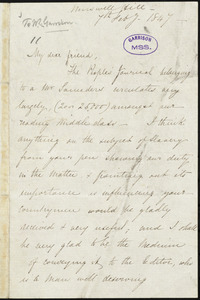 Muswell Hill.
7th Feby 7. 1847
To W. L. Garrison
GARRISON
MSS.
My dear friend,
The Peoples Journal belonging
to a Mr Saunders circulates very
largely, (20 or 25,000) amongst our
reading middle class — I think
anything on the subject of slavery
from your pen shewing our duty
in the matter & pointing out its
importance in influencing your
countrymen would be gladly
received & very useful, and I shall
be very glad to be the medium
of conveying it to the Editor, who
is a man well deserving